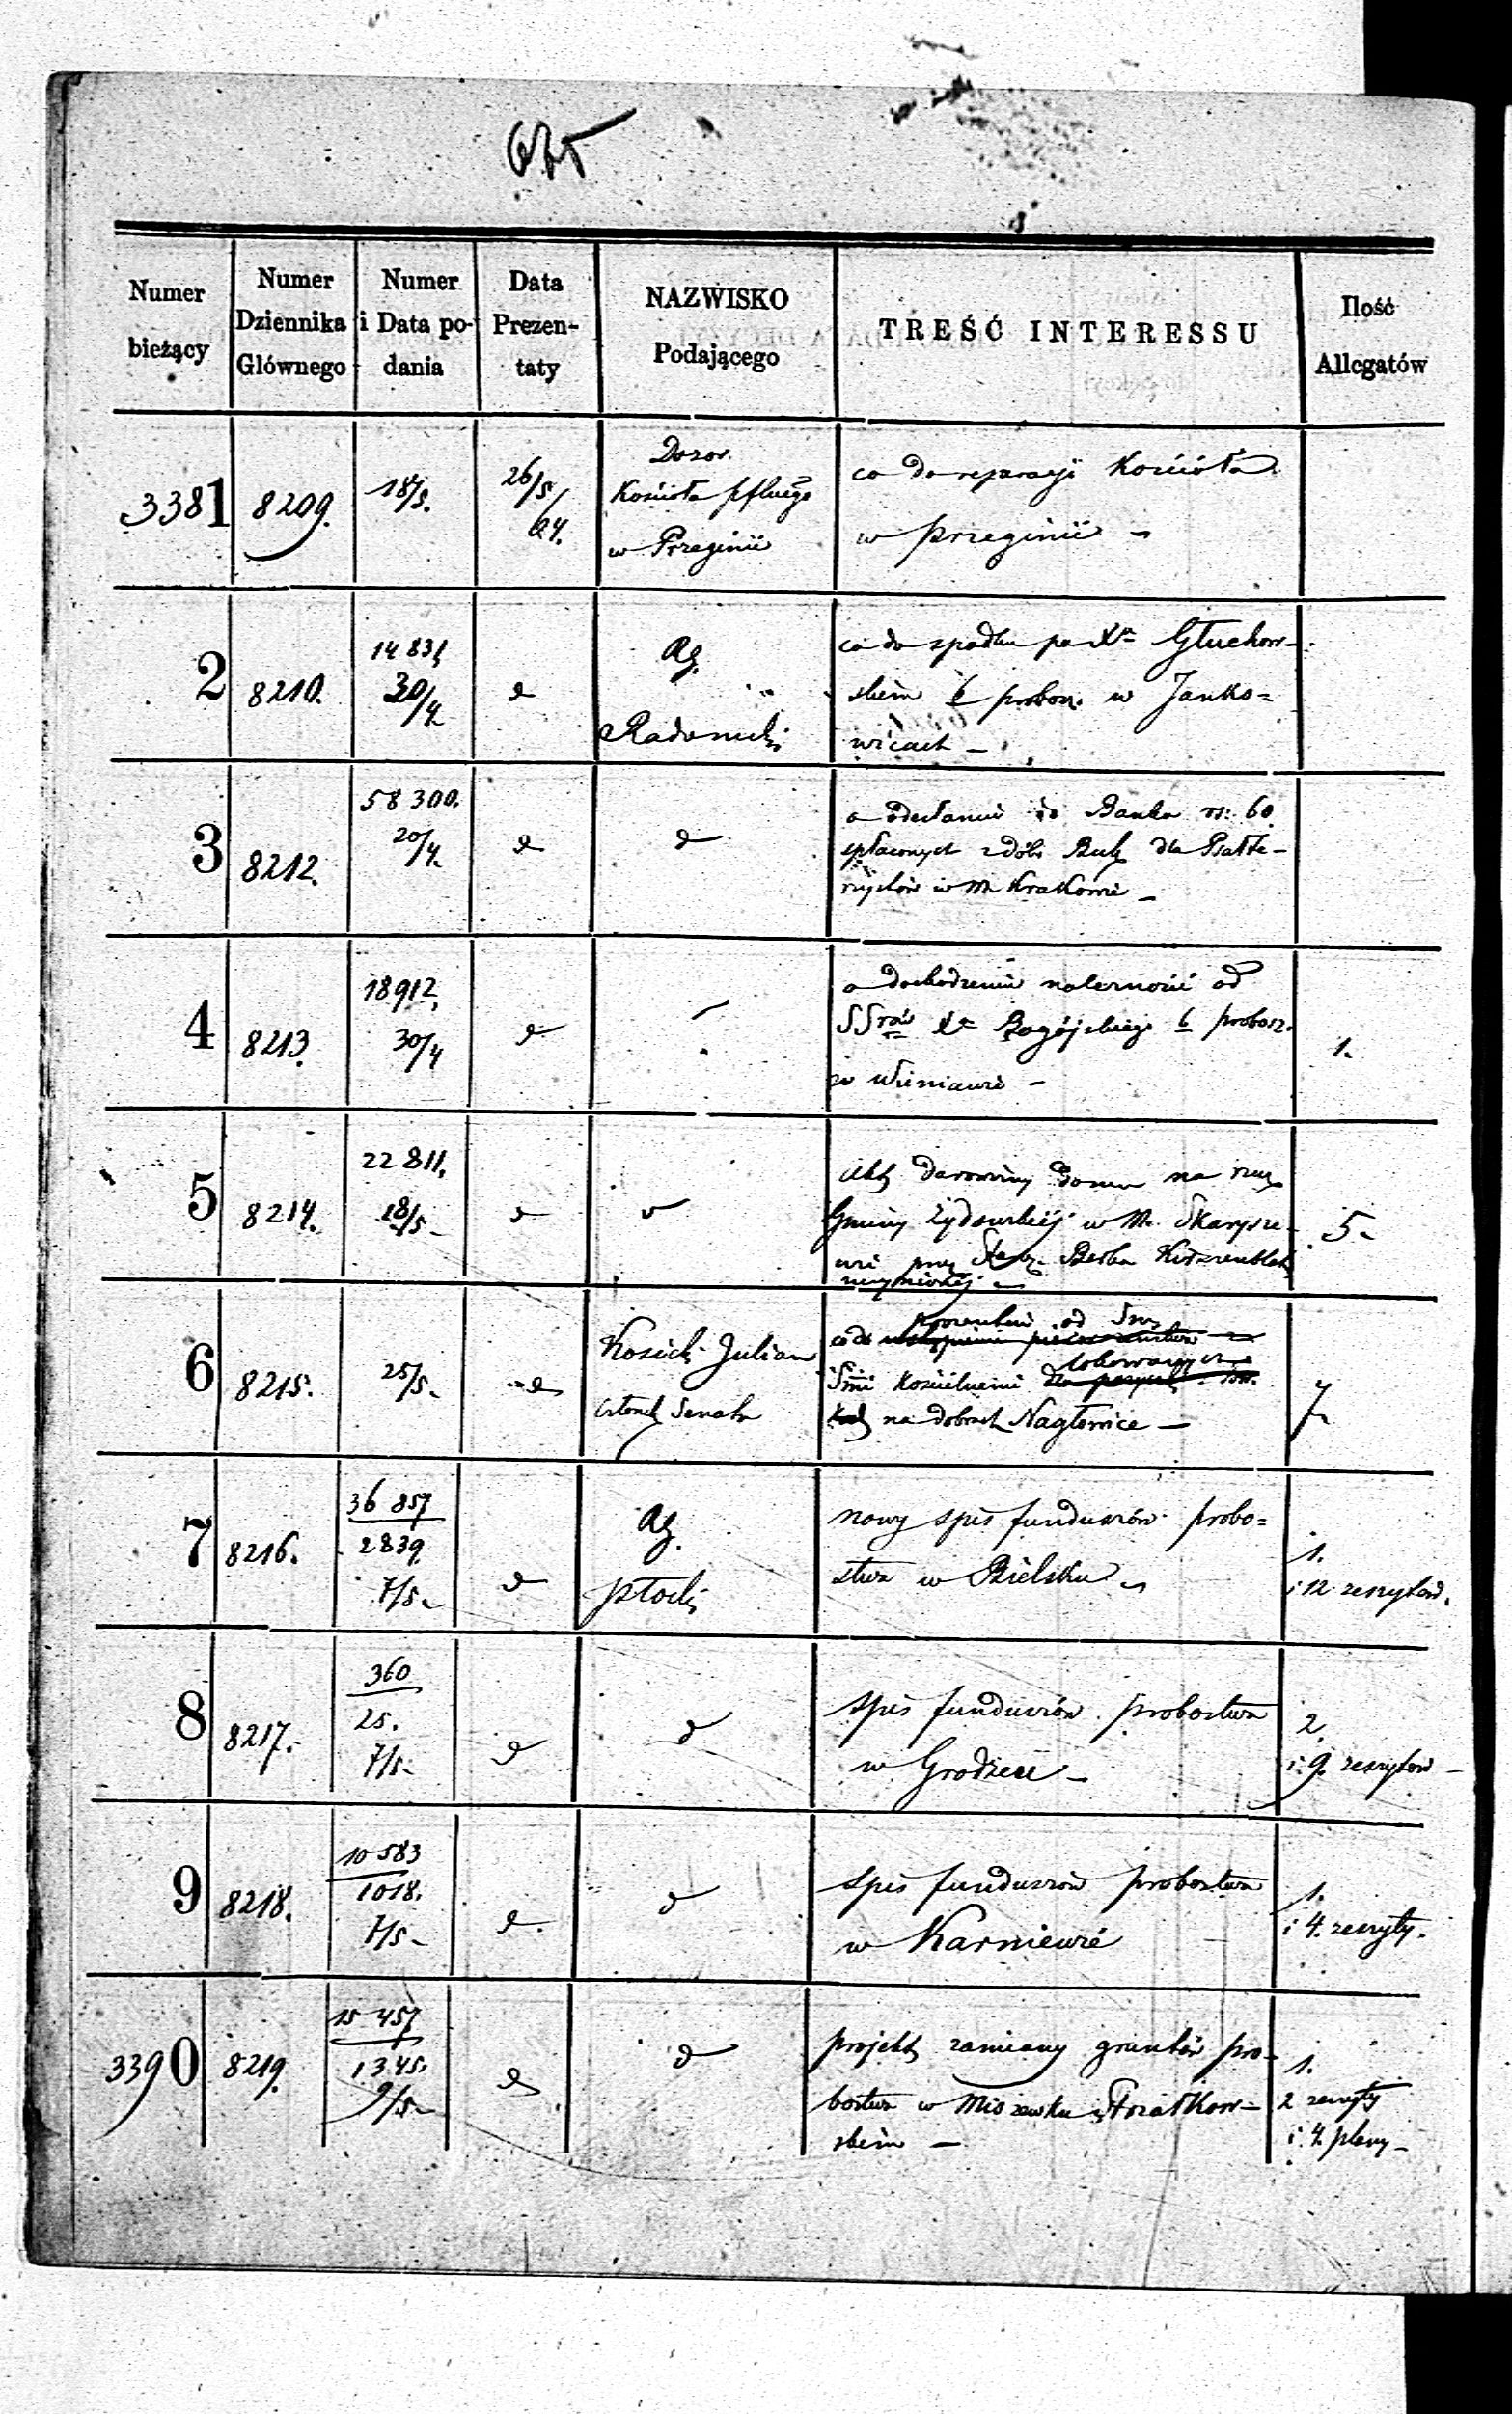 675
Numer bieżący
Numer Dziennika Głównego
Numer i Data podania
Data Prezentaty
NAZWISKO Podającego
TREŚĆ INTERESSU
Ilość Allegatów
3381
8209.
18/5.
26/5/64.
Dozor.
Kościoła
w Przeginii
co do reparacji Kościoła
w Przeginii –
2
8210.
14831
30/4
d
Rg.
Radomski
co do spadku po Xn Głuchow-
skim b probosz. w Janko=
wicach –
3
8212.
58300.
20/4.
d
d
o odesłanie do Banku rs: 60
spłaconych z dóbr dla Psałte-
rzystów w M. Krakowie –
4
8213.
18912,
30/4
d
o dochodzenie należności od
SSrów Xa Rogójskiego b probosz.
w Wieniawie –
1.
5
8214.
22811.
18/5 –
d
d
akt darowizny domu na rzecz
Gminy żydowskiej w M. Skarysze-
wie przez Berka
uczynionej –
5.
6
8215.
25/5.
d
Kosicki Julian
członek Senatu
co do
Smi Kościelnemi lokowanych
na dobrach Nagłowice –
7
7
8216.
36857
2839
7/5.
d
Rg.
Płocki
nowy spis funduszów probo=
stwa w Bielsku –
1.
i 12 zeszytów.
8
8217.
360
25.
7/5.
d
d
spis funduszów probostwa
w Grodzcu –
2,
i 9. zeszytów –
9
8218.
10583
1018.
7/5 –
d.
d
spis funduszów probostwa
w Karniewie
1.
i 4. zeszyty.
3390
8219.
15457
1345.
9/5 –
d
d
projekt zamiany gruntów pro-
bostwa w Miszewku Strzałkow-
skim –
1.
2 zeszyty
i 4 plany –